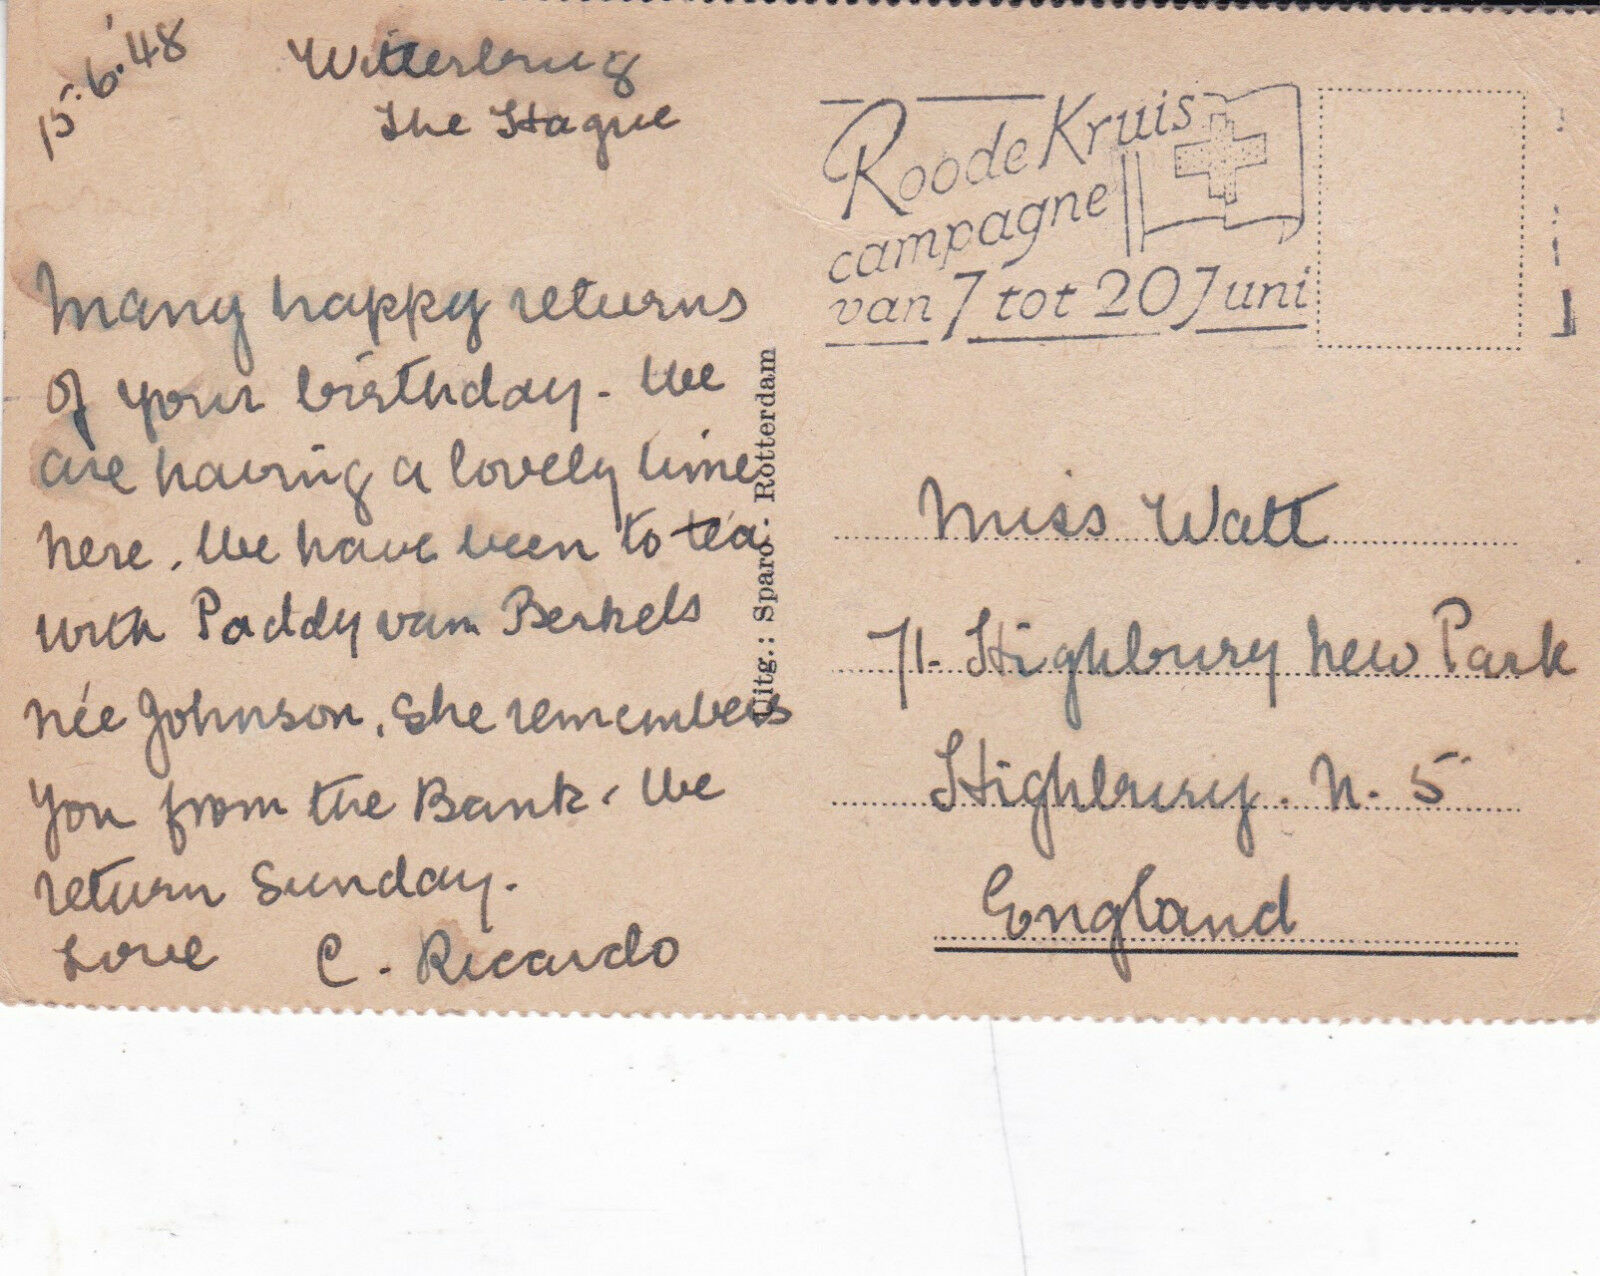 15.6.'48
Witterbrug
The Hague
Many happy returns
of your birthday - We
are having a lovely time
here. We have been to tea
with Paddy van Berkels
née Johnson. She remembers
you from the Bank. We
return Sunday.
Love C. Ricardo
Uitg.: Sparo. Rotterdam
Roode Kruis
campagne
van 7 tot 20 Juni
Miss Watt
71. Highbury New Park
Highbury. N. 5
England